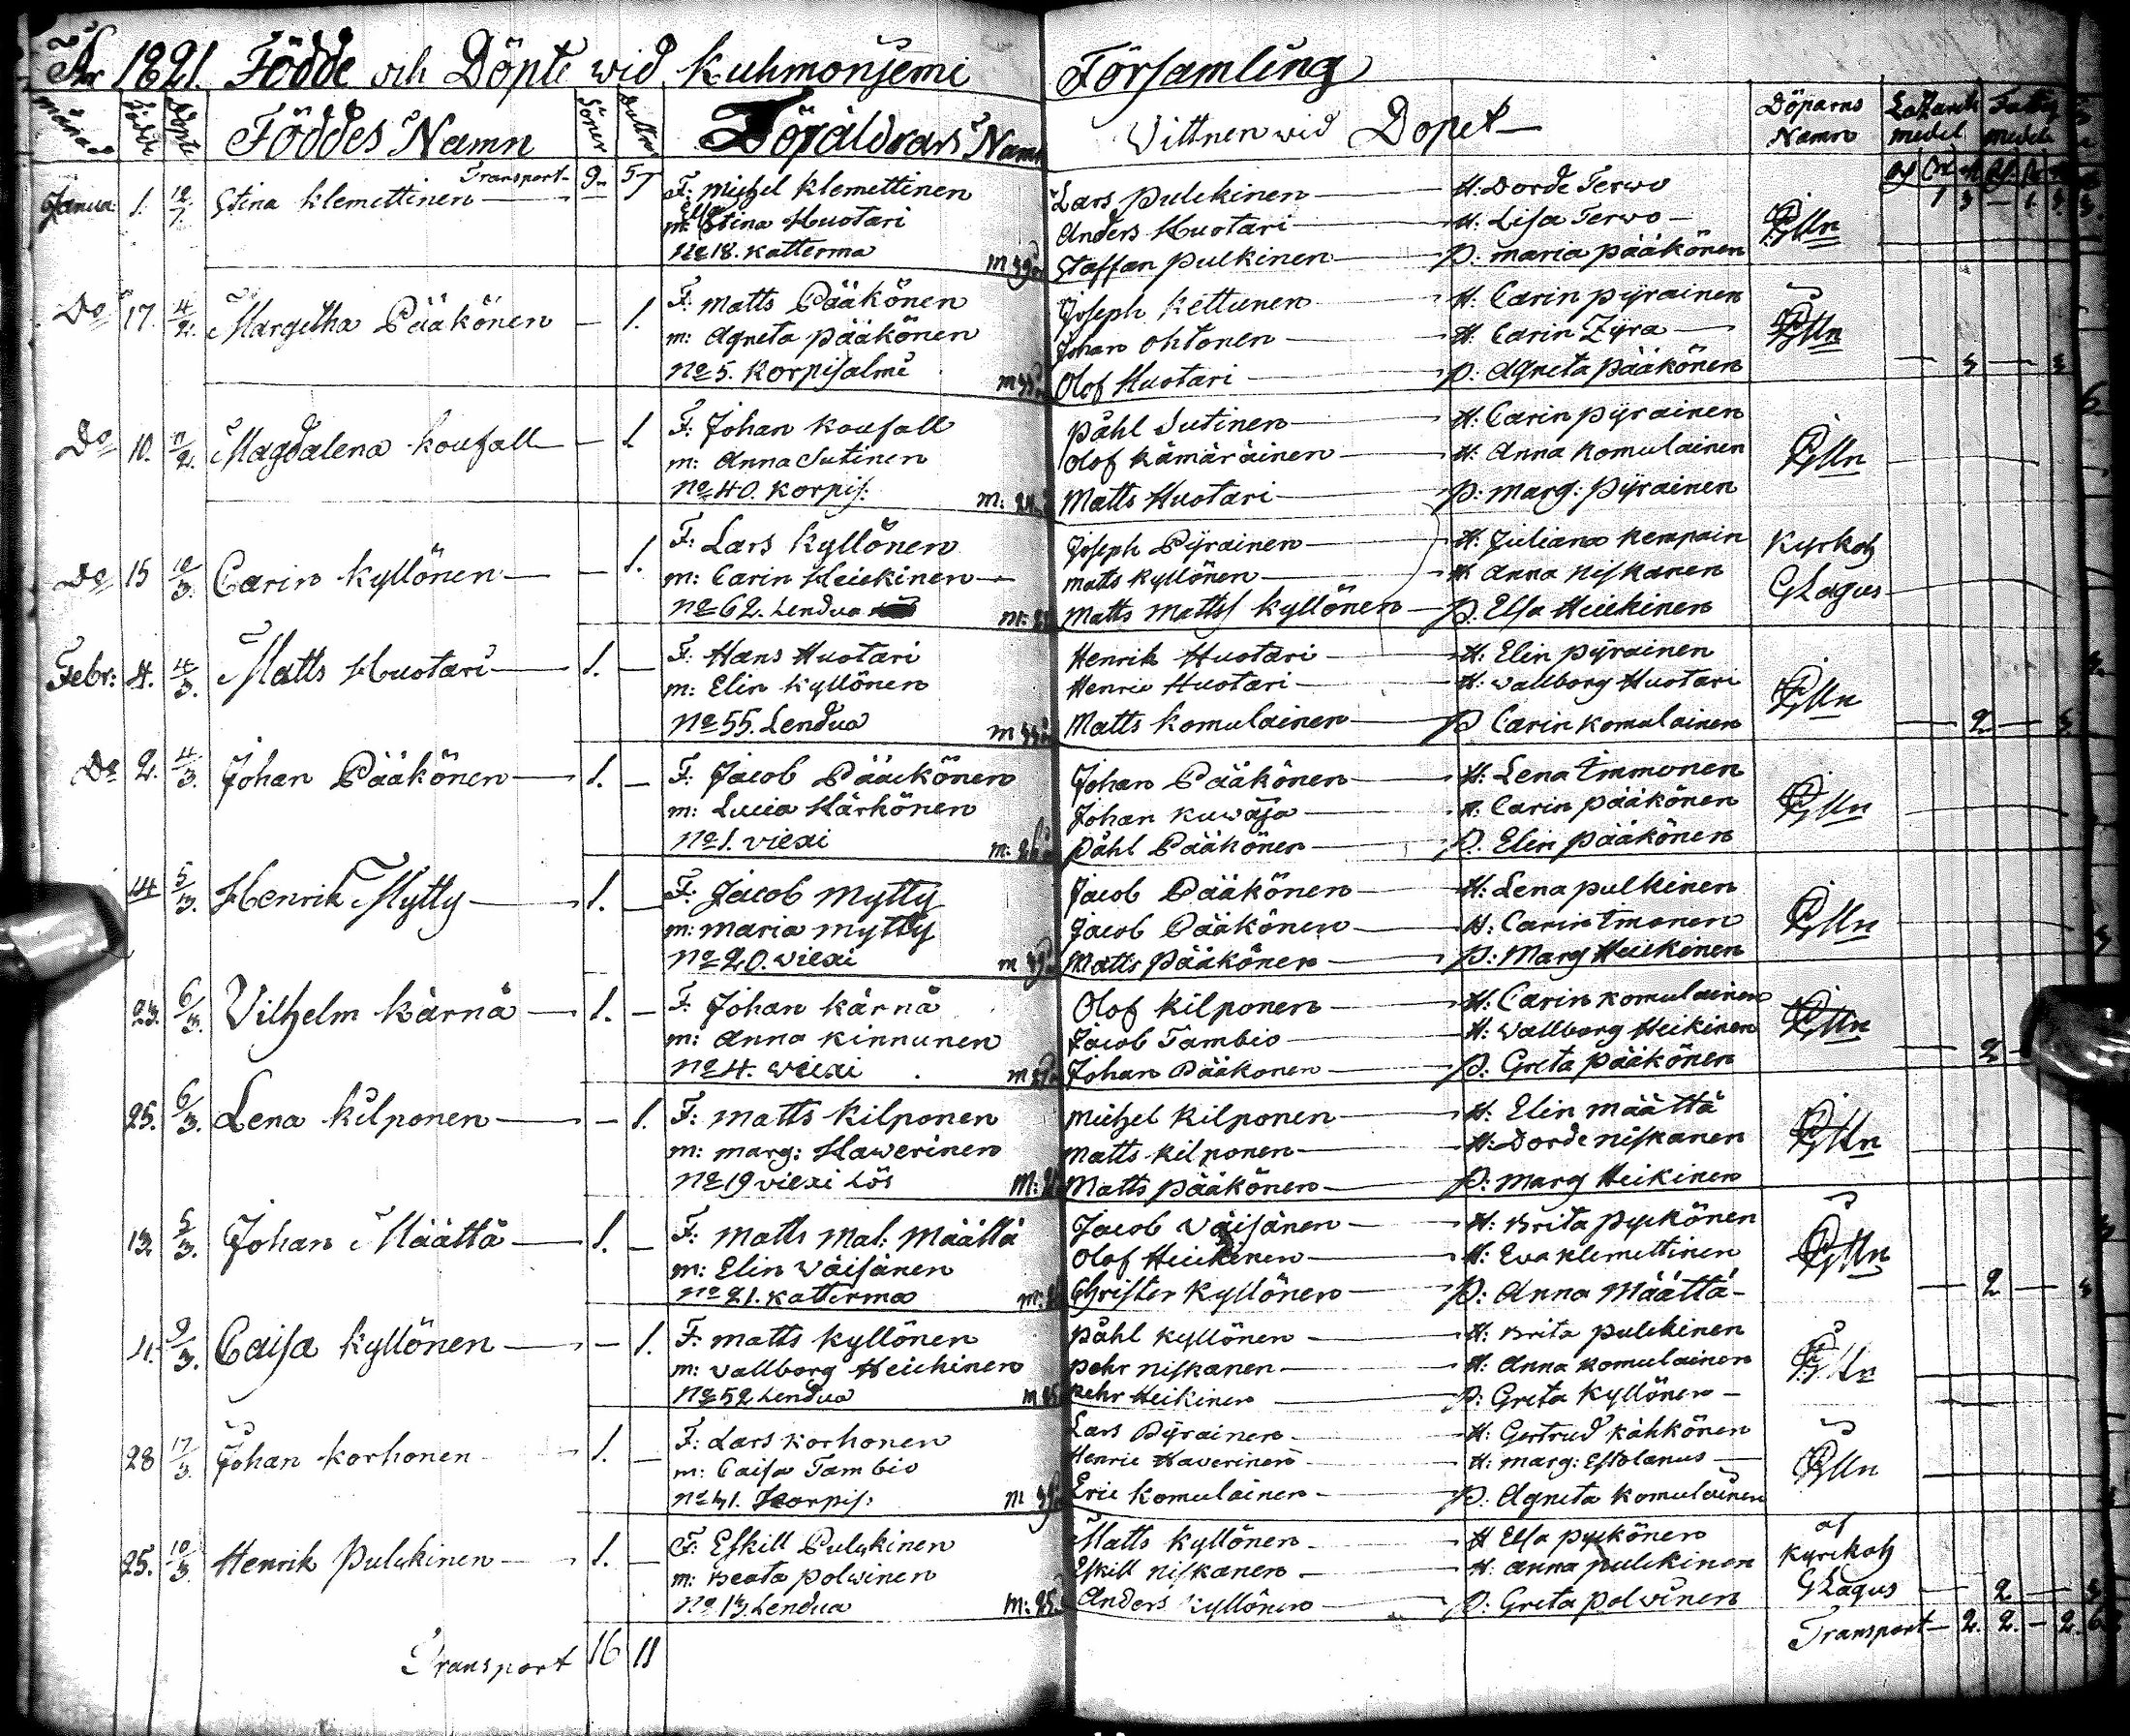 År 1821. Födde och Döpte wid Kuhmonjemi Församling
Månad Födde Döpte Föddes Namn Söner Föräldrars Namn Vittnen wid Dopet Döparns Namn Lazarett medel Fattig medel
Transport 9 5
Janua: 1. Stina Klemettinen F: Michel Klemettinen Lars Pulckinen H: Dorde Terwo
m: Stina Huotari Anders Huotari H: Lisa Terwo
No 18. Katterma Staffan Pulkinen P: Maria Pääkönen
Do 17. 4/2. Margetha Pääkönen 1. F: Matts Pääkönen Joseph Kettunen H: Carin Pyrainen
m: Agneta Pääkönen Johan Ohtonen H: Carin Zyra
No 5. Korpisalmi Olof Huotari P: Agneta Pääkönen
Do 10. 11/2. Magdalena Koufall 1 F: Johan Koufall Påhl Sutinen H: Carin Pyrainen
m: Anna Sutinen Olof Kämäräinen H: Anna Komulainen
No 40. Korpis: Matts Huotari P: Marg: Pyrainen
Do 15 10/3. Carin Kyllönen 1. F: Lars Kyllönen Joseph Pyrainen H: Juliana Kempain Kyrkoh
m: Carin Heickinen Matts Kyllönen H: Anna Niskanen GLagus
No 62. Lendua Matts Mattss Kyllönen P. Elsa Heickinen
Febr: 4. 4/3. Matts Huotari 1. F: Hans Huotari Henrik Huotari H: Elin Pyrainen
m: Elin Kyllönen Henric Huotari H: Wallborg Huotari
No 55. Lendua Matts Komulainen P Carin Komulainen 2
Do 2. 4/3. Johan Pääkönen 1. F: Jacob Pääckönen Johan Pääkönen H: Lena Immonen
m: Lucia Härkönen Johan Kuwaja H: Carin Pääkönen
No 1. Viexi Påhl Pääkönen P. Elin Pääkönen
14 5/3. Henrik Mytty 1. F: Jacob Mytty Jacob Pääkönen H: Lena Pulkinen
m: Maria Mytty Jacob Pääkönen H: Carin Imonen
No 20. Wiexi Matts Pääkönen P: Marg Heickinen
23. 6/3. Vilhelm Kärnä 1. F: Johan Kärnä Olof Kilponen H: Carin Komulainen
m: Anna Kinnunen Jacob Tambio H: Wallborg Heikinen
No 4. Wiexi Johan Pääkonen P: Greta Pääkönen 2
25. 6/3. Lena Kilponen 1. F: Matts Kilponen Michel Kilponen H: Elin Määttä
m: Marg: Hawerinen Matts Kilponen H: Dorde Niskanen
No 19 Viexi Lös Matts Pääkönen P: Marg Heikinen
13 5/3. Johan Määttä 1. F: Matts Mat: Määttä Jacob Wäisänen H: Brita Pyckönen
m: Elin Wäisänen Olof Heickinen H: Eva Klemettinen
No 21. Katterma Christer Kyllönen P: Anna Määttä 2
4. 9/3. Caisa Kyllönen 1. F: Matts Kyllönen Påhl Kyllönen H: Brita Pulckinen
m: Vallborg Heickinen Pehr Niskanen H: Anna Komulainen
No 52 Lendua Pehr Heikinen P: Greta Kyllönen
28 17/3. Johan Korhonen 1. F: Lars Korhonen Lars Pyrainen H: Gertrud Kähkönen
m: Caisa Tambio Henric Haverinen H: Marg: Estolanus
No 41. Korpis: Eric Komulainen P: Agneta Komulainen
25. 10/3. Henrik Pulckinen 1. F: Eskill Pulckinen Matts Kyllönen H Elsa Pyckönen af Kyrckoh
m: Beata Polwinen Eskill Niskanen H: Anna Pulckinen GLagus
No 13. Lendua Anders Kyllönen P: Greta Polwinen 2
Transport 16 11 Transport 2. 2. 2. 6